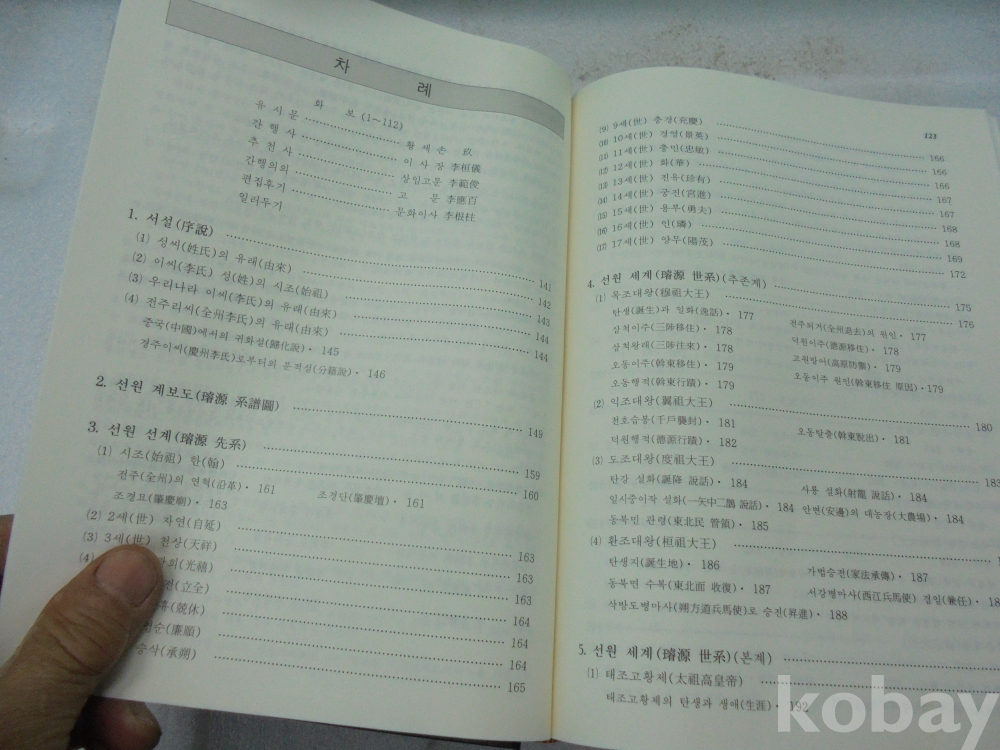 차 례
화 보 (1～112)
유 시 문 황 세 손 玖
간 행 사 이 사 장 李桓儀
추 천 사 상임고문 李範俊
간행의의 고 문 李應百
편집후기 문화이사 李根柱
일러두기
1. 서설(序說) 141
(1) 성씨(姓氏)의 유래(由來) 142
(2) 이씨(李氏) 성(姓)의 시조(始祖) 143
(3) 우리나라 이씨(李氏)의 유래(由來) 144
(4) 전주리씨(全州李氏)의 유래(由來) 144
중국(中國)에서의 귀화설(歸化說)・145
경주이씨(慶州李氏)로부터의 분적설(分籍說)・146
2. 선원 계보도(璿源 系譜圖) 149
3. 선원 선계(璿源 先系) 159
(1) 시조(始祖) 한(翰) 160
전주(全州)의 연혁(沿革)・161 조경단(肇慶壇)・161
조경묘(肇慶廟)・163
(2) 2세(世) 자연(自延) 163
(3) 3세(世) 천상(天祥) 163
(4) 광희(光禧) 163
전(立全) 164
휴(兢休) 164
순(廉順) 164
승삭(承朔) 165
123
(9) 9세(世) 충경(充慶) 166
(10) 10세(世) 경영(景英) 166
(11) 11세(世) 충민(忠敏) 166
(12) 12세(世) 화(華) 167
(13) 13세(世) 진유(珍有) 167
(14) 14세(世) 궁진(宮進) 168
(15) 15세(世) 용부(勇夫) 168
(16) 16세(世) 인(璘) 169
(17) 17세(世) 양무(陽茂) 172
4. 선원 세계(璿源 世系)(추존계) 175
(1) 목조대왕(穆祖大王) 176
탄생(誕生)과 일화(逸話)・177 전주퇴거(全州退去)의 원인・177
삼척이주(三陟移住)・178 덕원이주(德源移住)・178
삼척왕래(三陟往來)・178 고원방어(高原防禦)・179
오동이주(斡東移住)・179 오동이주 원인(斡東移住 原因)・179
오동행적(斡東行蹟)・179
(2) 익조대왕(翼祖大王) 180
천호습봉(千戶襲封)・181 오동탈출(斡東脫出)・181
덕원행적(德源行蹟)・182
(3) 도조대왕(度祖大王) 183
탄강 설화(誕降 說話)・184 사룡 설화(射龍 說話)・184
일시중이작 설화(一矢中二鵲 說話)・184 안변(安邊)의 대농장(大農場)・184
동북민 관령(東北民 管領)・185
(4) 환조대왕(桓祖大王)
탄생지(誕生地)・186 가법승전(家法承傳)・187
동북면 수복(東北面 收復)・187 서강병마사(西江兵馬使) 겸임(兼任)・
삭방도병마사(朔方道兵馬使)로 승진(昇進)・188
5. 선원 세계(璿源 世系)(본계)
(1) 태조고황제(太祖高皇帝)
태조고황제의 탄생과 생애(生涯)・192
kobay